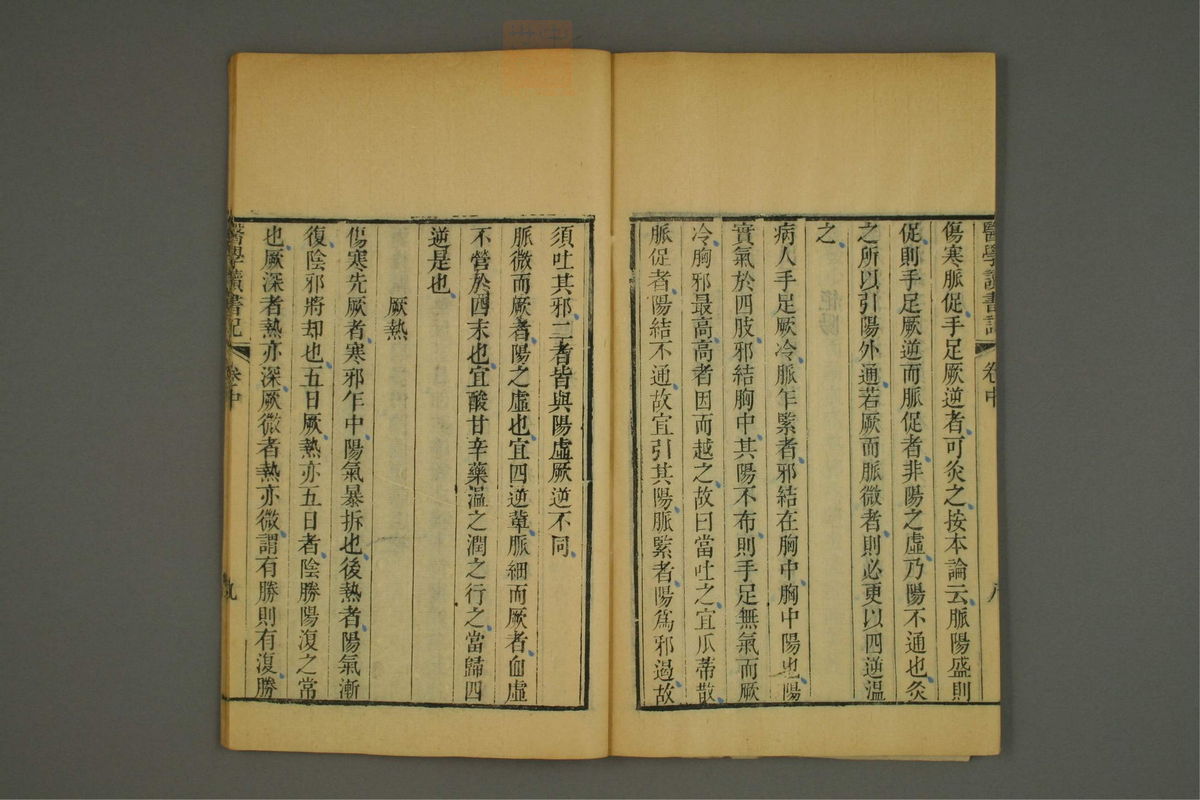 醫學讀書記 卷中 八
傷寒脈促手足厥逆者可灸之按本論云脈陽盛則
促則手足厥逆而脈促者非陽之虛乃陽不通也灸
之所以引陽外通若厥而脈微者則必更以四逆溫
之
病人手足厥冷脈乍緊者邪結在胸中胸中陽也陽
實氣於四肢邪結胸中其陽不布則手足無氣而厥
冷胸邪最高高者因而越之故曰當吐之宜瓜蒂散
脈促者陽結不通故宜引其陽脈緊者陽爲邪遏故
須吐其邪二者皆與陽虛厥逆不同
脈微而厥者陽之虛也宜四逆輩脈細而厥者血虛
不營於四末也宜酸甘辛藥溫之潤之行之當歸四
逆是也
厥熱
傷寒先厥者寒邪乍中陽氣暴拆也後熱者陽氣漸
復陰邪將却也五日厥熱亦五日者陰勝陽復之常
也厥深者熱亦深厥微者熱亦微謂有勝則有復勝
醫學讀書記 卷中 九